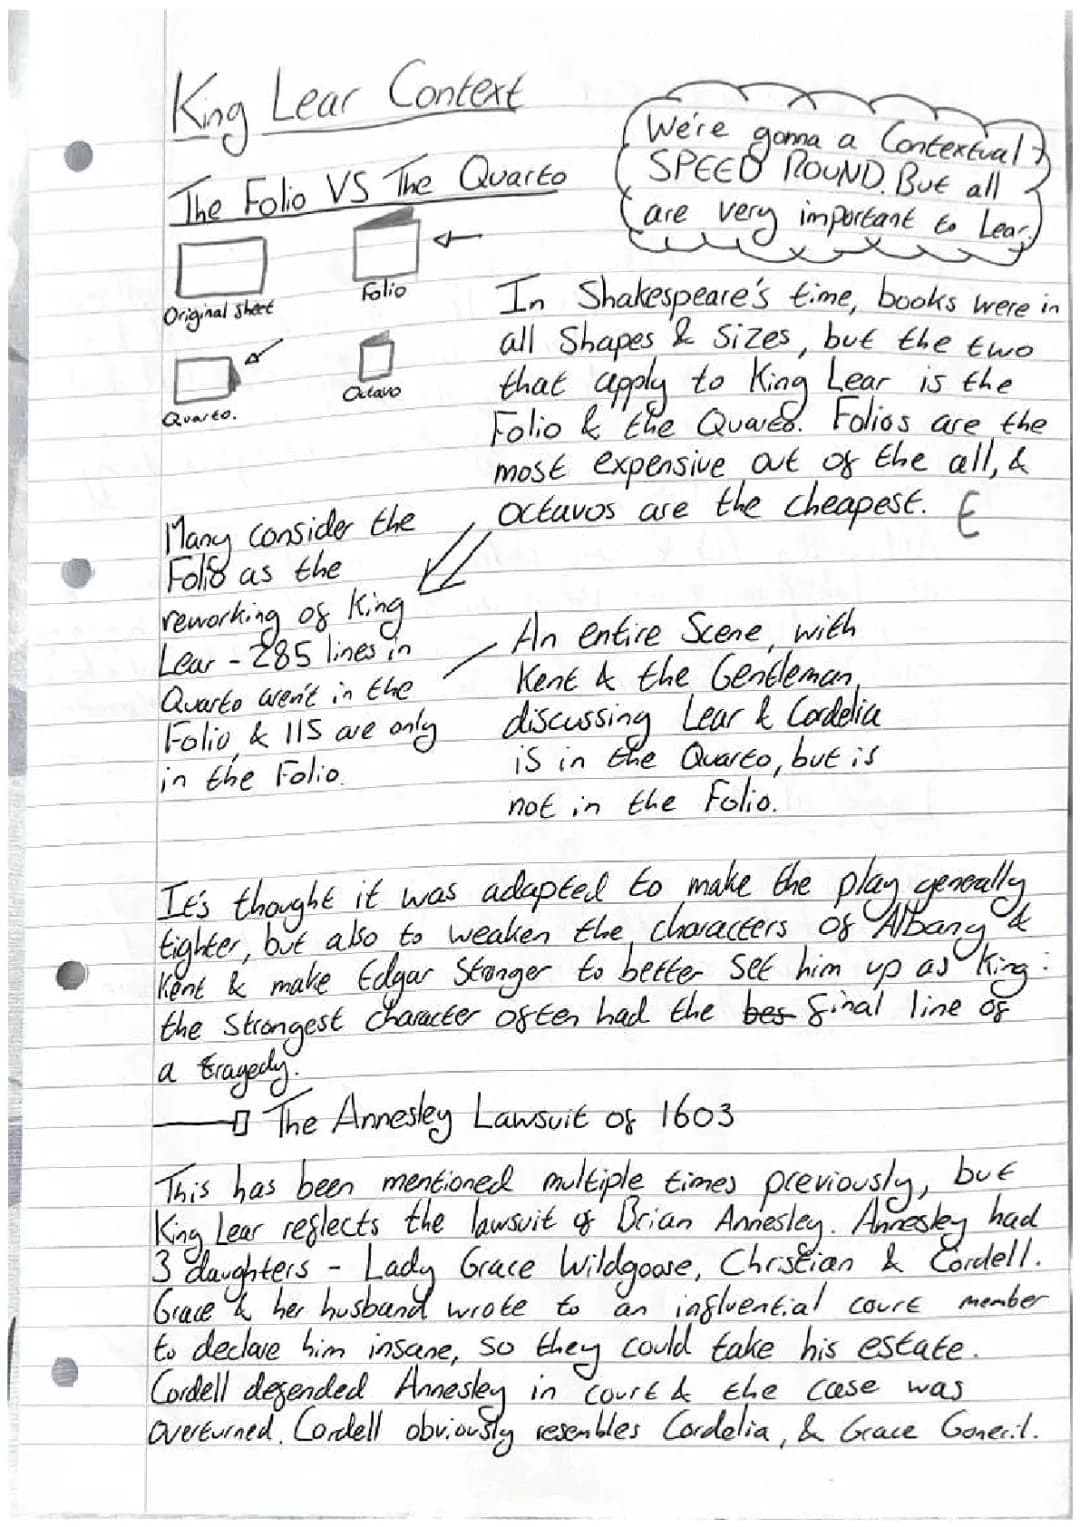 King Lear Context
We're gonna a Contextual
SPEED ROUND. But all
are very important to Lear.
The Folio VS The Quarto
Original sheet
Folio
Quarto.
Octavo
In Shakespeare's time, books were in
all Shapes & Sizes, but the two
that apply to King Lear is the
Folio & the Quarto. Folios are the
most expensive out of the all, &
octavos are the cheapest.
Many consider the
Folio as the
reworking of King
Lear - 285 lines in
Quarto weren't in the
Folio, & 115 are only
in the Folio.
An entire Scene, with
Kent & the Gentleman,
discussing Lear & Cordelia
is in the Quarto, but is
not in the Folio.
It's thought it was adapted to make the play generally
tighter, but also to weaken the characters of Albany &
Kent & make Edgar Stronger to better set him up as King:
the strongest character often had the bes final line of
a tragedy.
The Annesley Lawsuit of 1603
This has been mentioned multiple times previously, but
King Lear reflects the lawsuit of Brian Annesley. Annesley had
3 daughters - Lady Grace Wildgoose, Christian & Cordell.
Grace & her husband wrote to an influential court member
to declare him insane, so they could take his estate.
Cordell defended Annesley in court & the case was
overturned. Cordell obviously resembles Cordelia, & Grace Goneril.